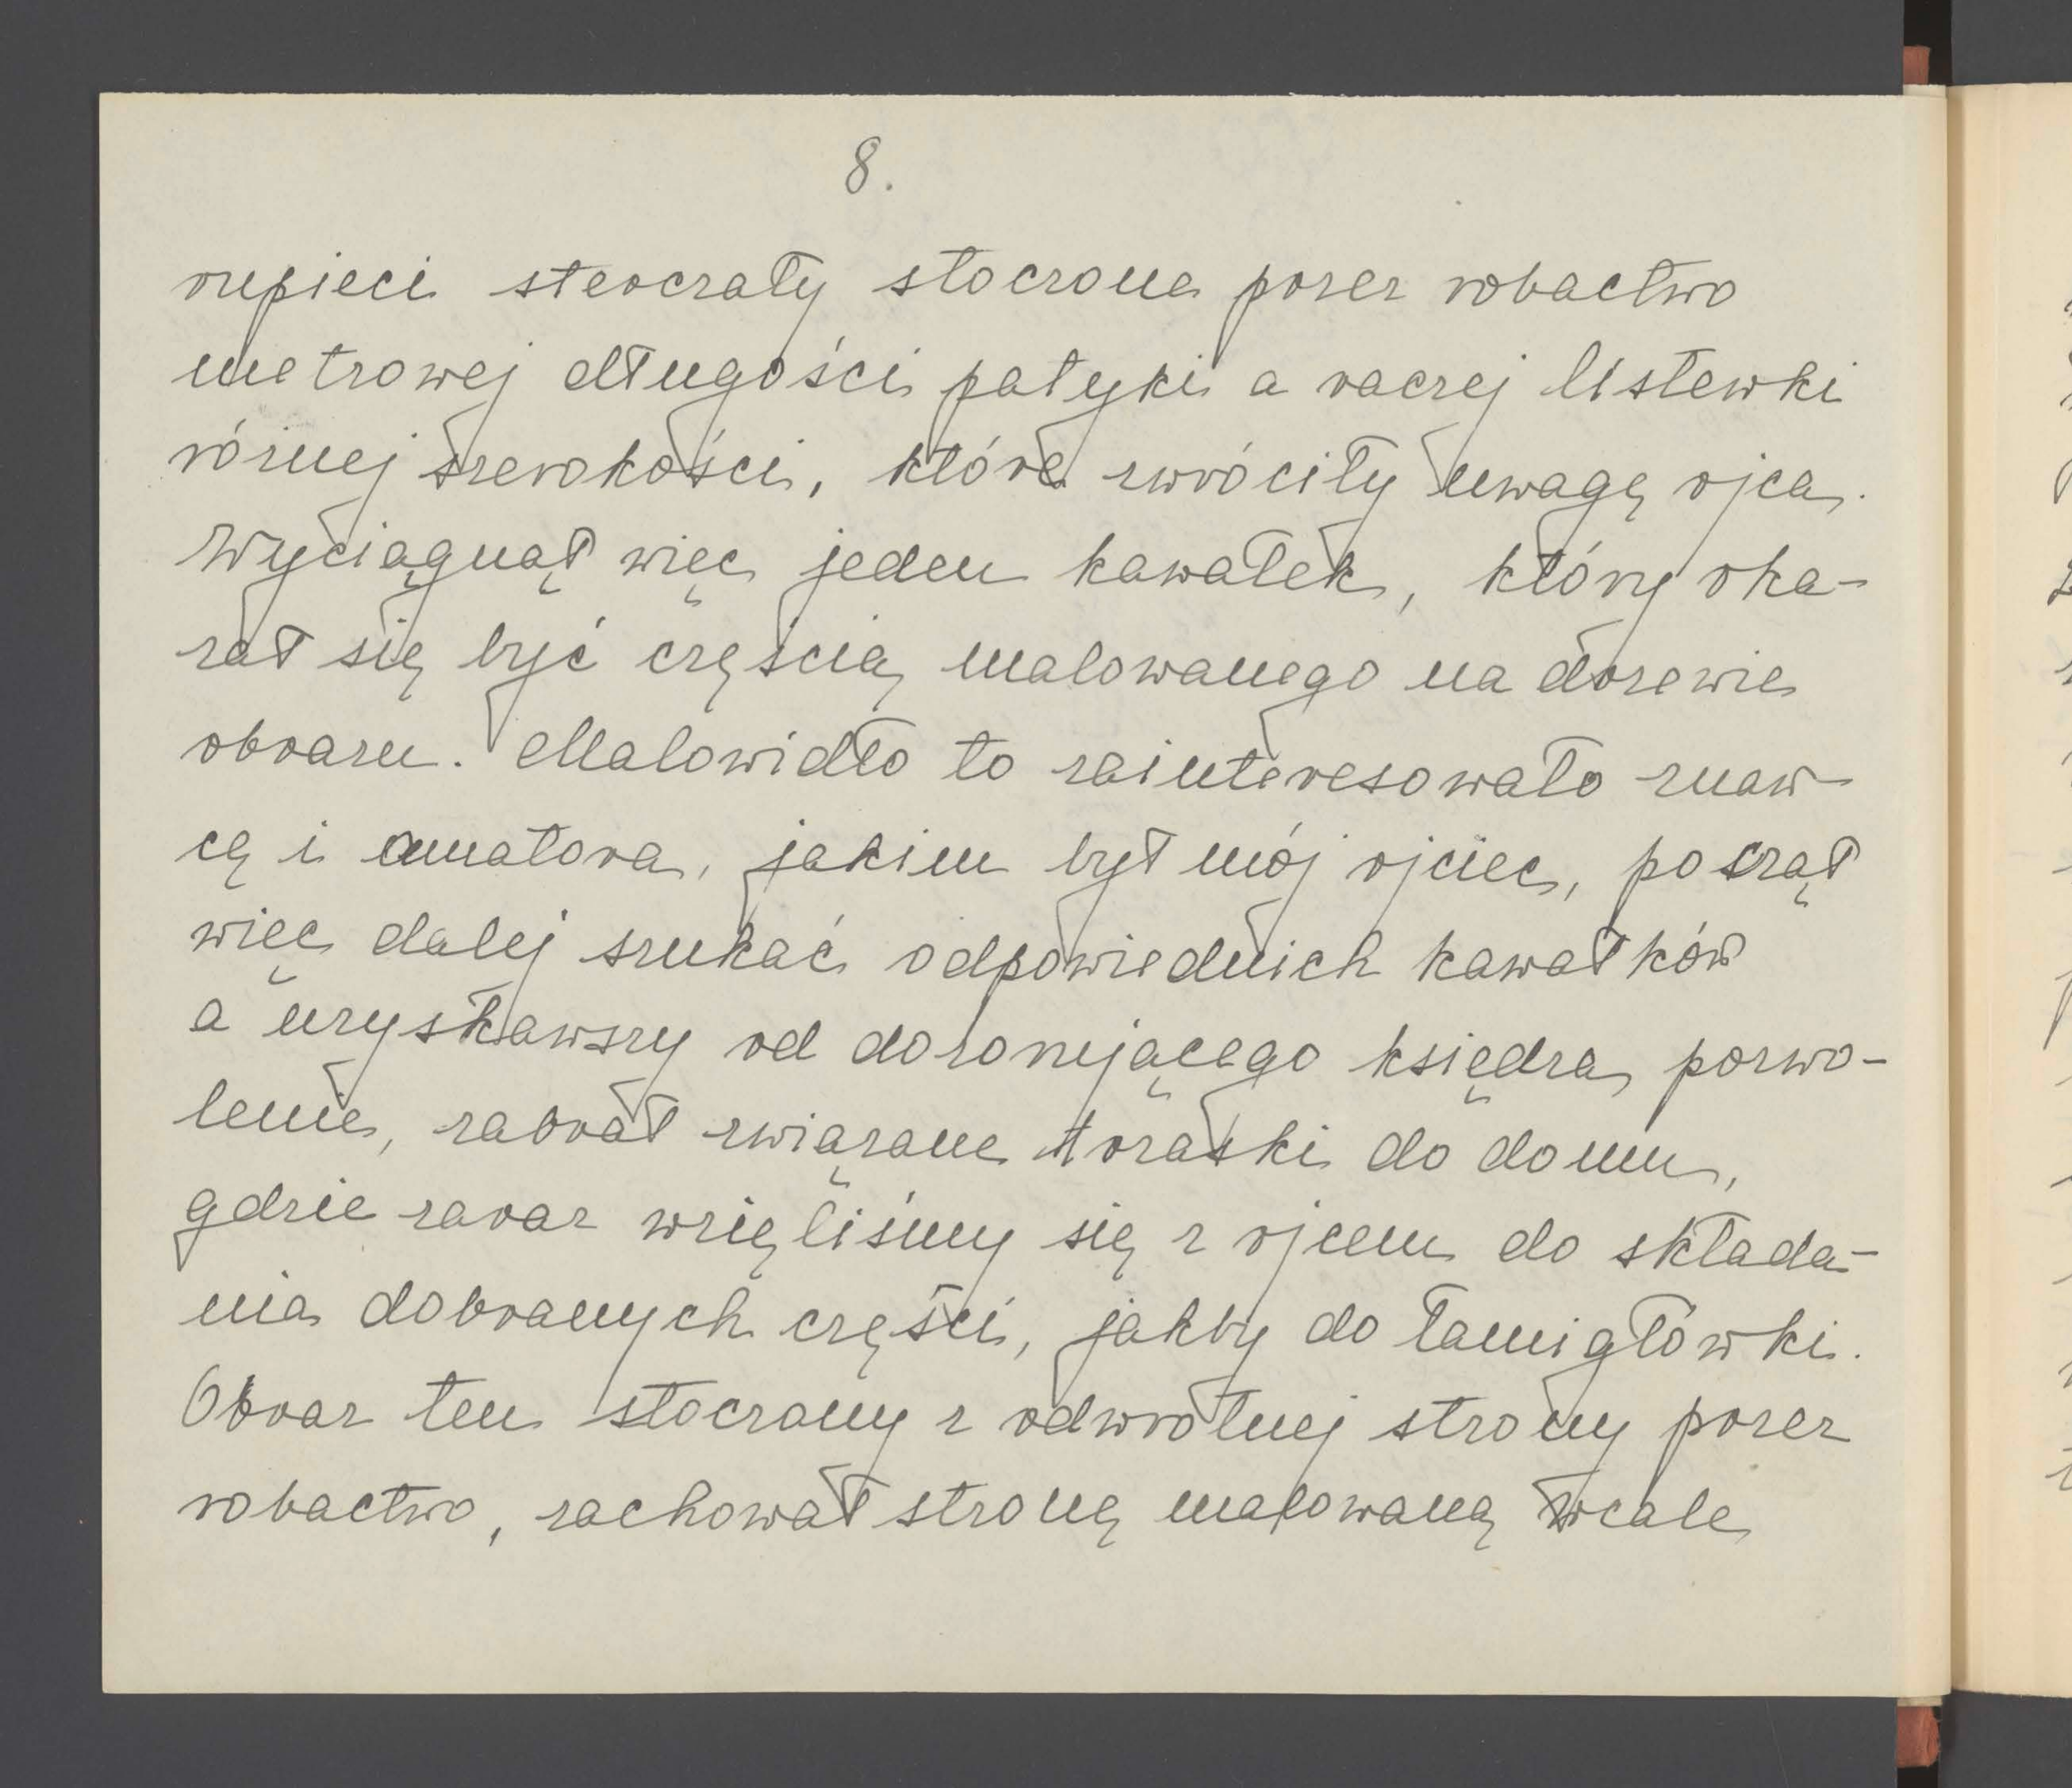 8.
rupieci sterczały stoczone przez robactwo
metrowej długości patyki a raczej listewki
różnej szerokości, które zwróciły uwagę ojca.
Wyciągnął więc jeden kawałek, który oka-
zał się być częścią malowanego na drzewie
obrazu. Malowidło to zainteresowało znaw-
cę i amatora, jakim był mój ojciec, począł
więc dalej szukać odpowiednich kawałków
a uzyskawszy od dozorującego księdza pozwo-
lenie, zabrał związane trzaski do domu,
gdzie zaraz wzięliśmy się z ojcem do składa-
nia dobranych części, jakby do łamigłówki.
Obraz ten stoczony z odwrotnej strony przez
robactwo, zachował stronę malowaną wcale